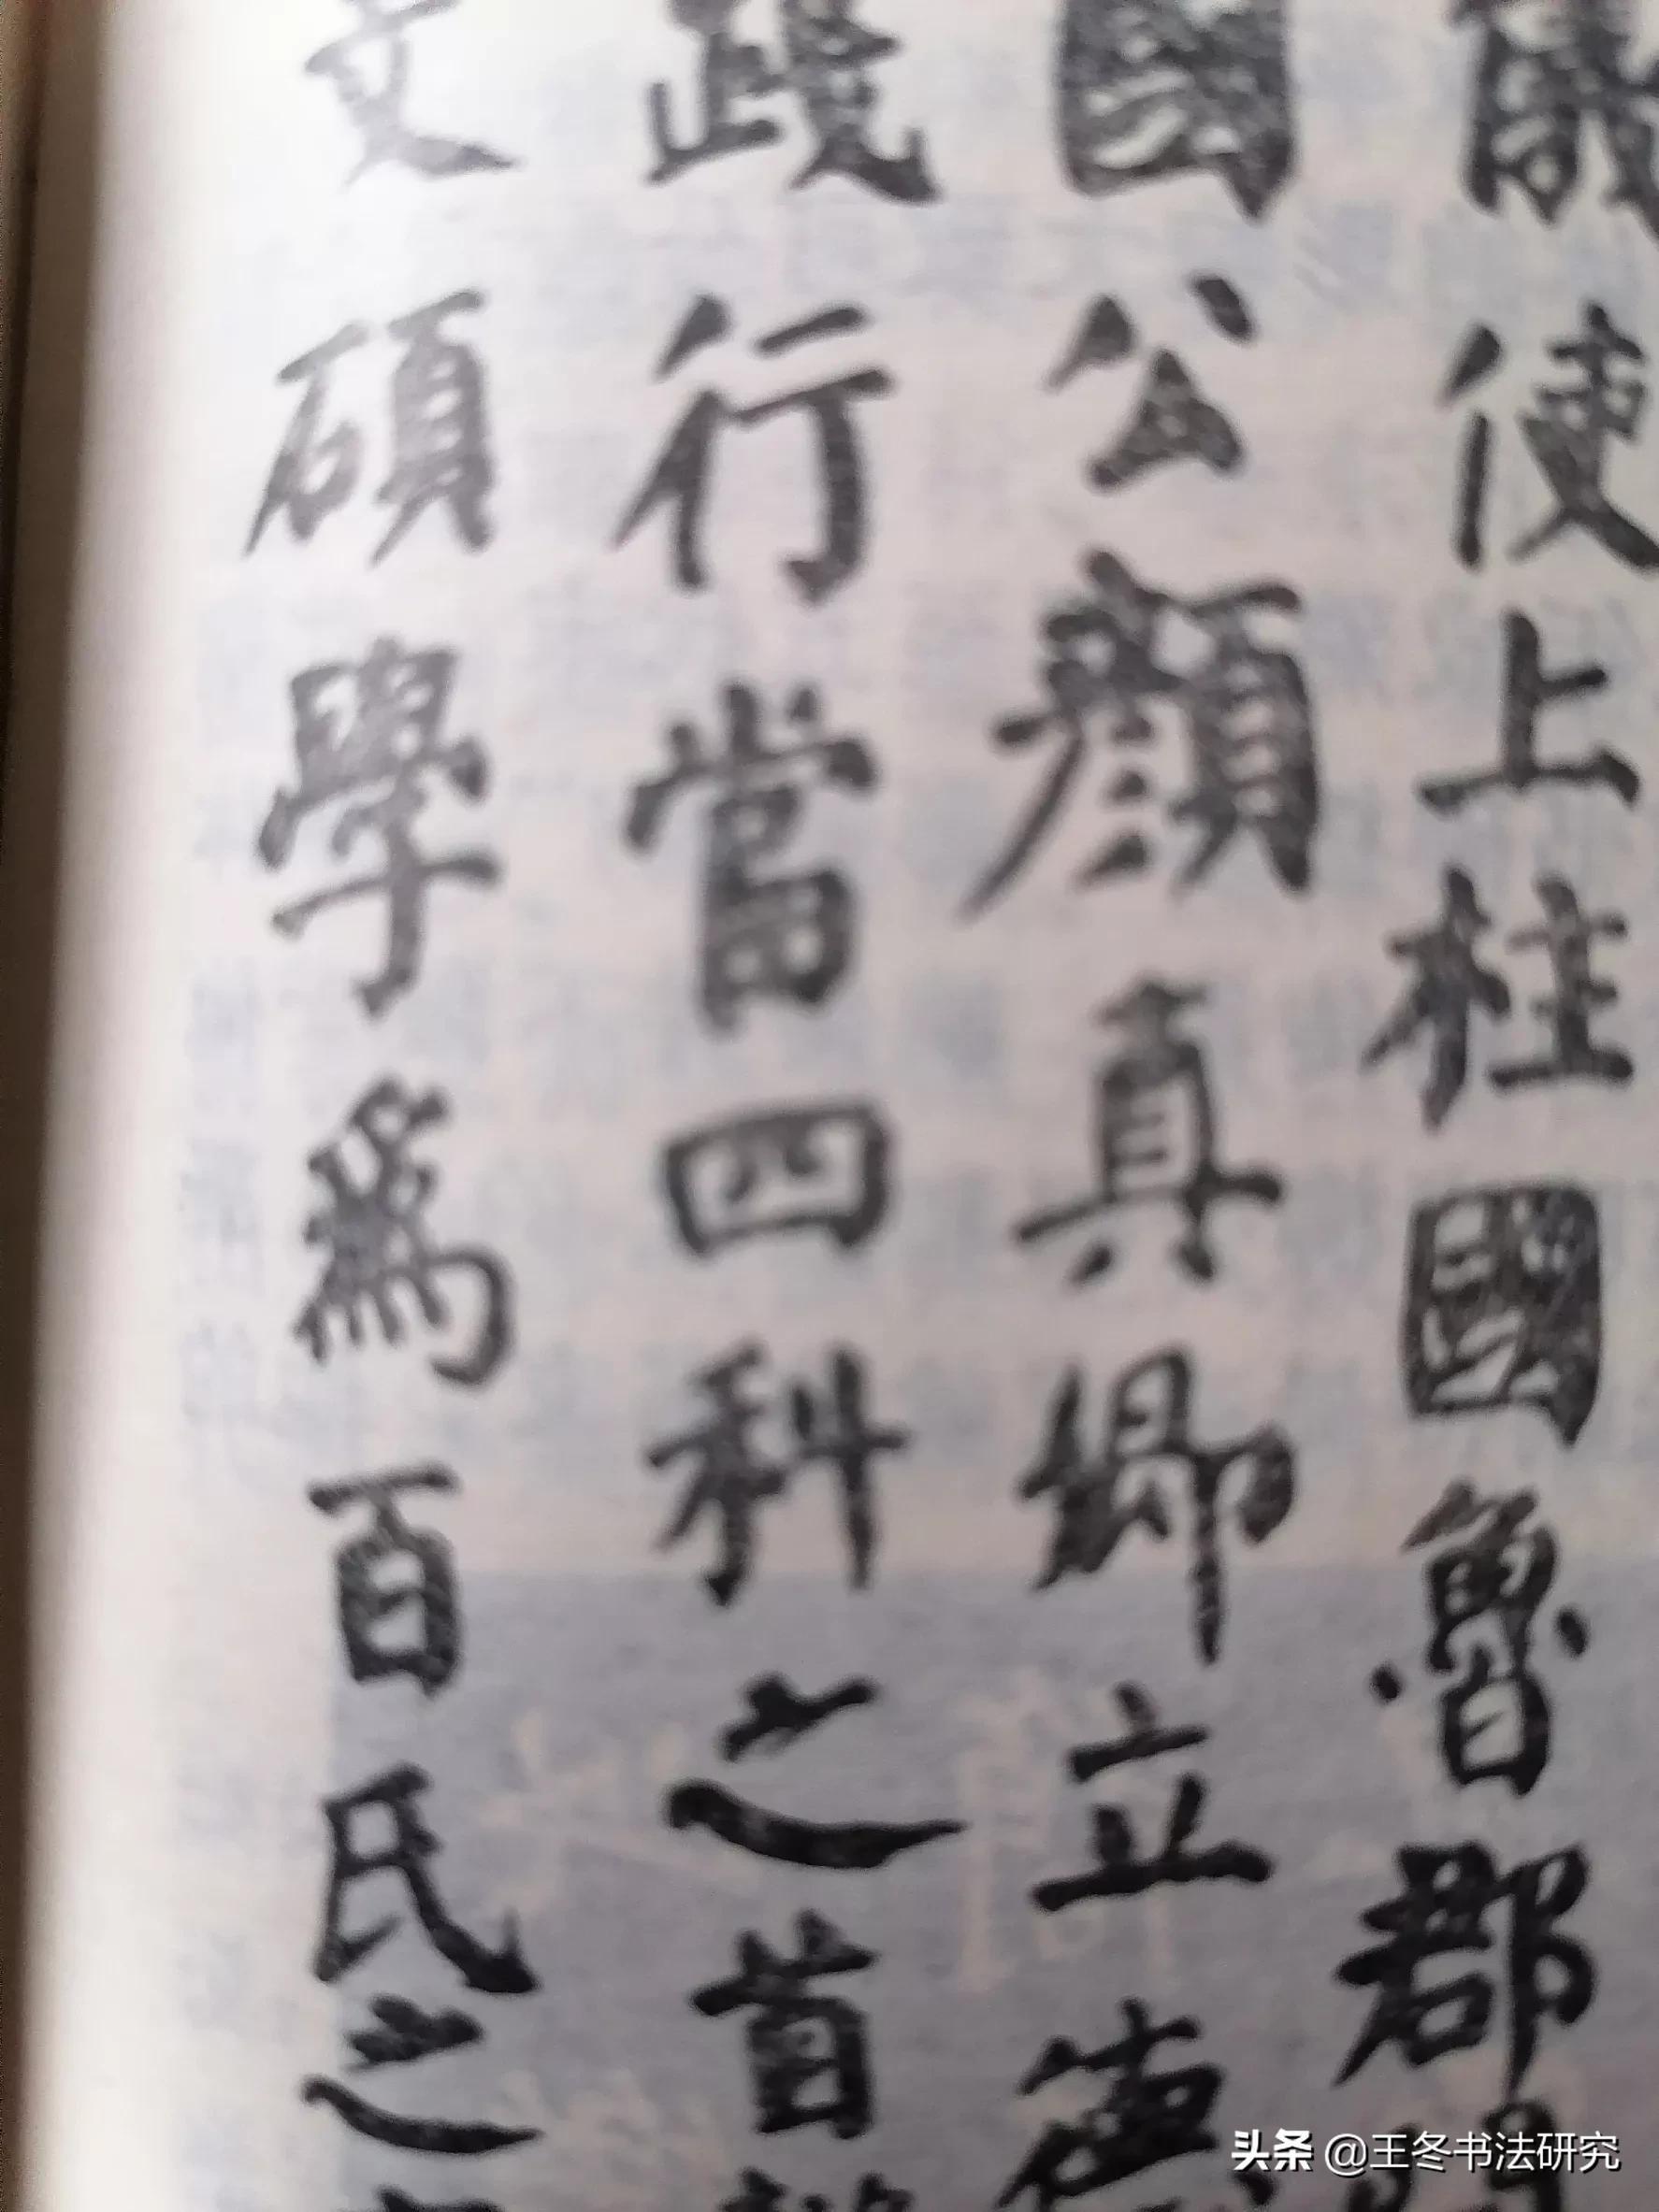 儀使上柱國魯郡開
國公顏真卿立德
踐行當四科之首
文碩學為百氏之
头条 @王冬书法研究